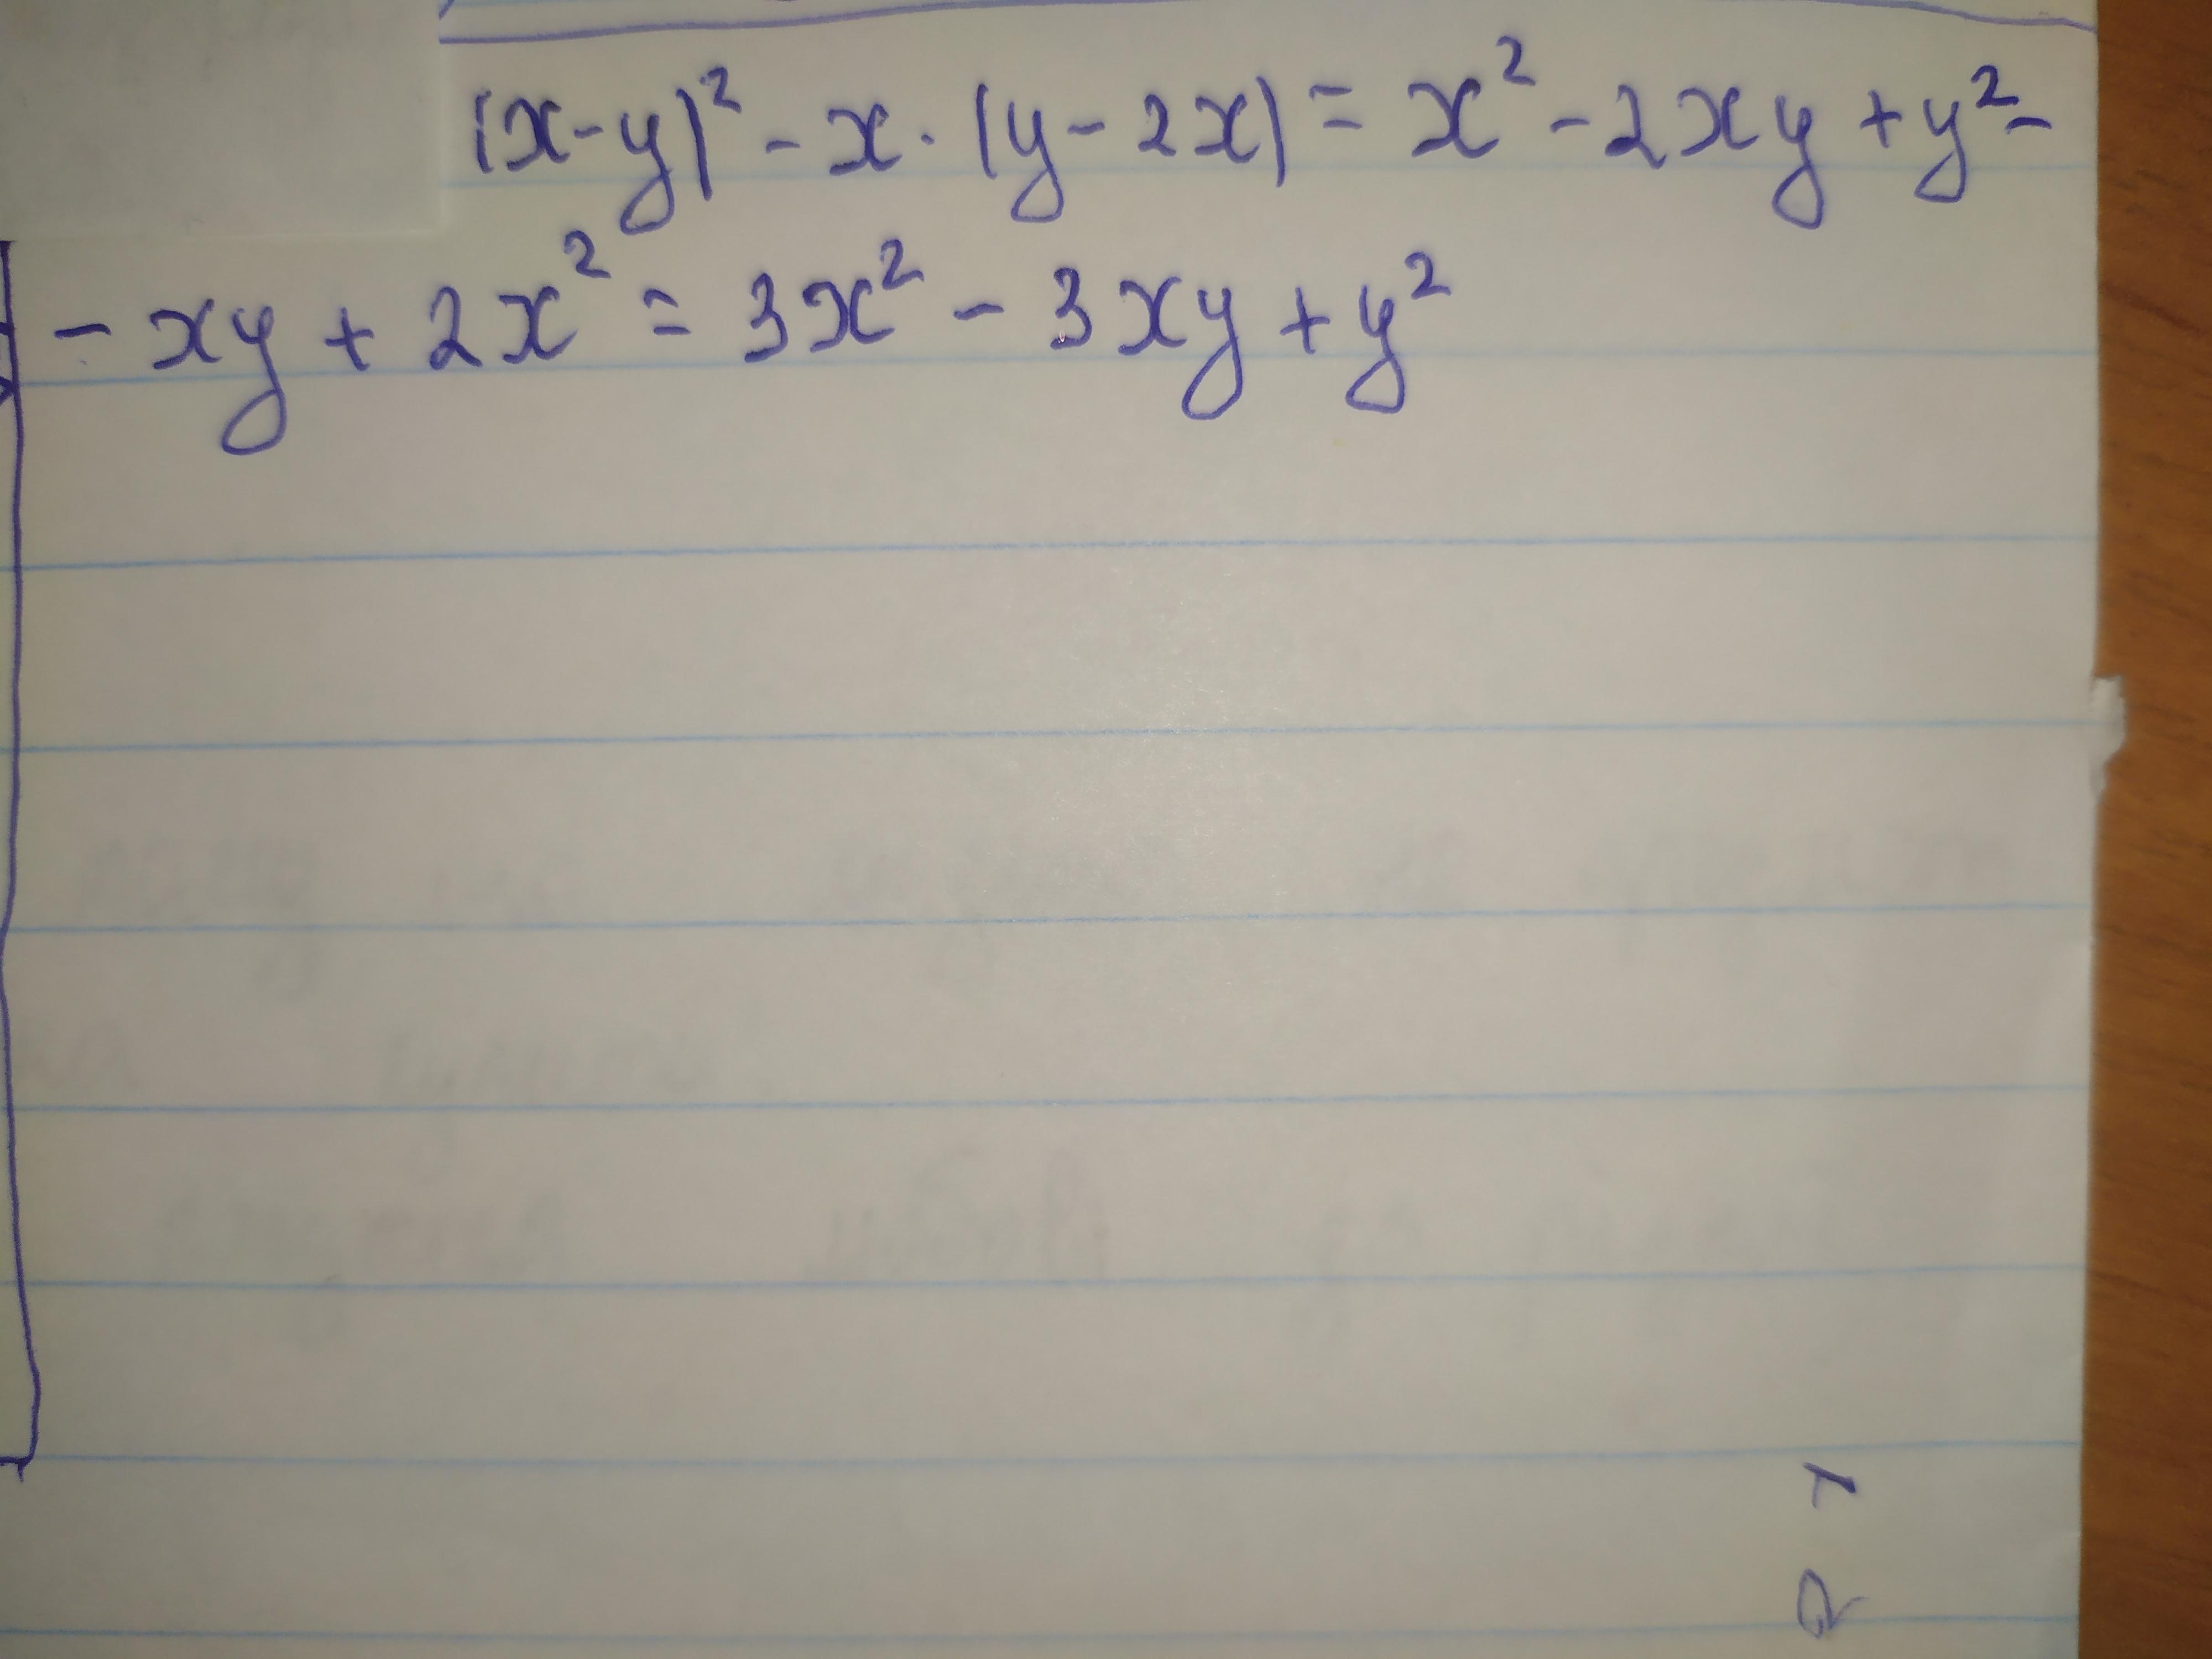 (x-y)² - x · (y - 2x) = x² - 2xy + y² -
- xy + 2x² = 3x² - 3xy + y²